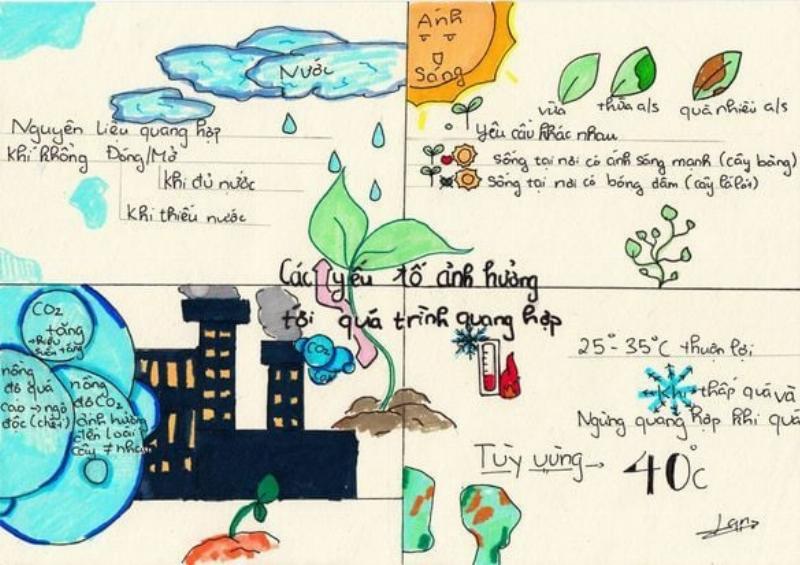 Nước
Nguyên liệu quang hợp
Khí khổng Đóng/Mở
khi đủ nước
khi thiếu nước
Ánh
Sáng
vừa thừa a/s quá nhiều a/s
Yêu cầu khác nhau
Sống tại nơi có ánh sáng mạnh (cây bàng)
Sống tại nơi có bóng dâm (cây lá lốt)
Các yếu tố ảnh hưởng
tới quá trình quang hợp
CO2
tăng
→ hiệu
suất tăng
nồng
độ quá
cao → ngộ
độc (chết)
nồng
độ CO2
ảnh hưởng
đến loài
cây ≠ nhau
CO2
25° - 35°C thuận lợi
Khi thấp quá và
Ngừng quang hợp khi quá
Tùy vùng → 40°C
Lan